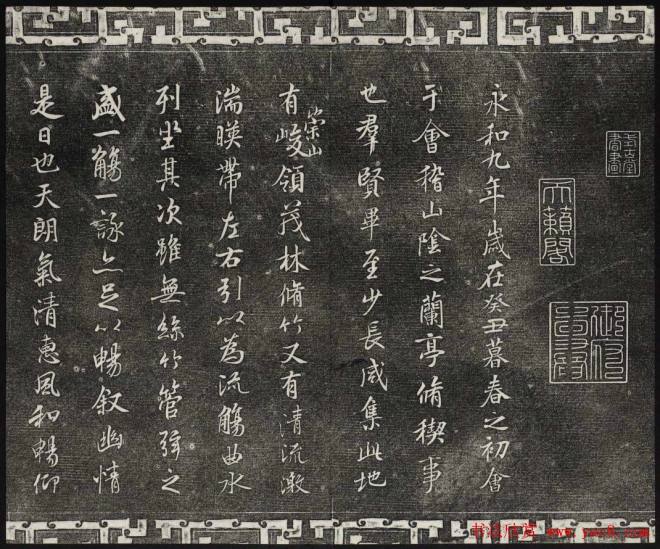 永和九年歲在癸丑暮春之初會
于會稽山陰之蘭亭脩稧事
也羣賢畢至少長咸集此地
有崇山峻領茂林脩竹又有清流激
湍暎帶左右引以為流觴曲水
列坐其次雖無絲竹管弦之
盛一觴一詠亦足以暢敘幽情
是日也天朗氣清惠風和暢仰
天籟閣
书法欣赏